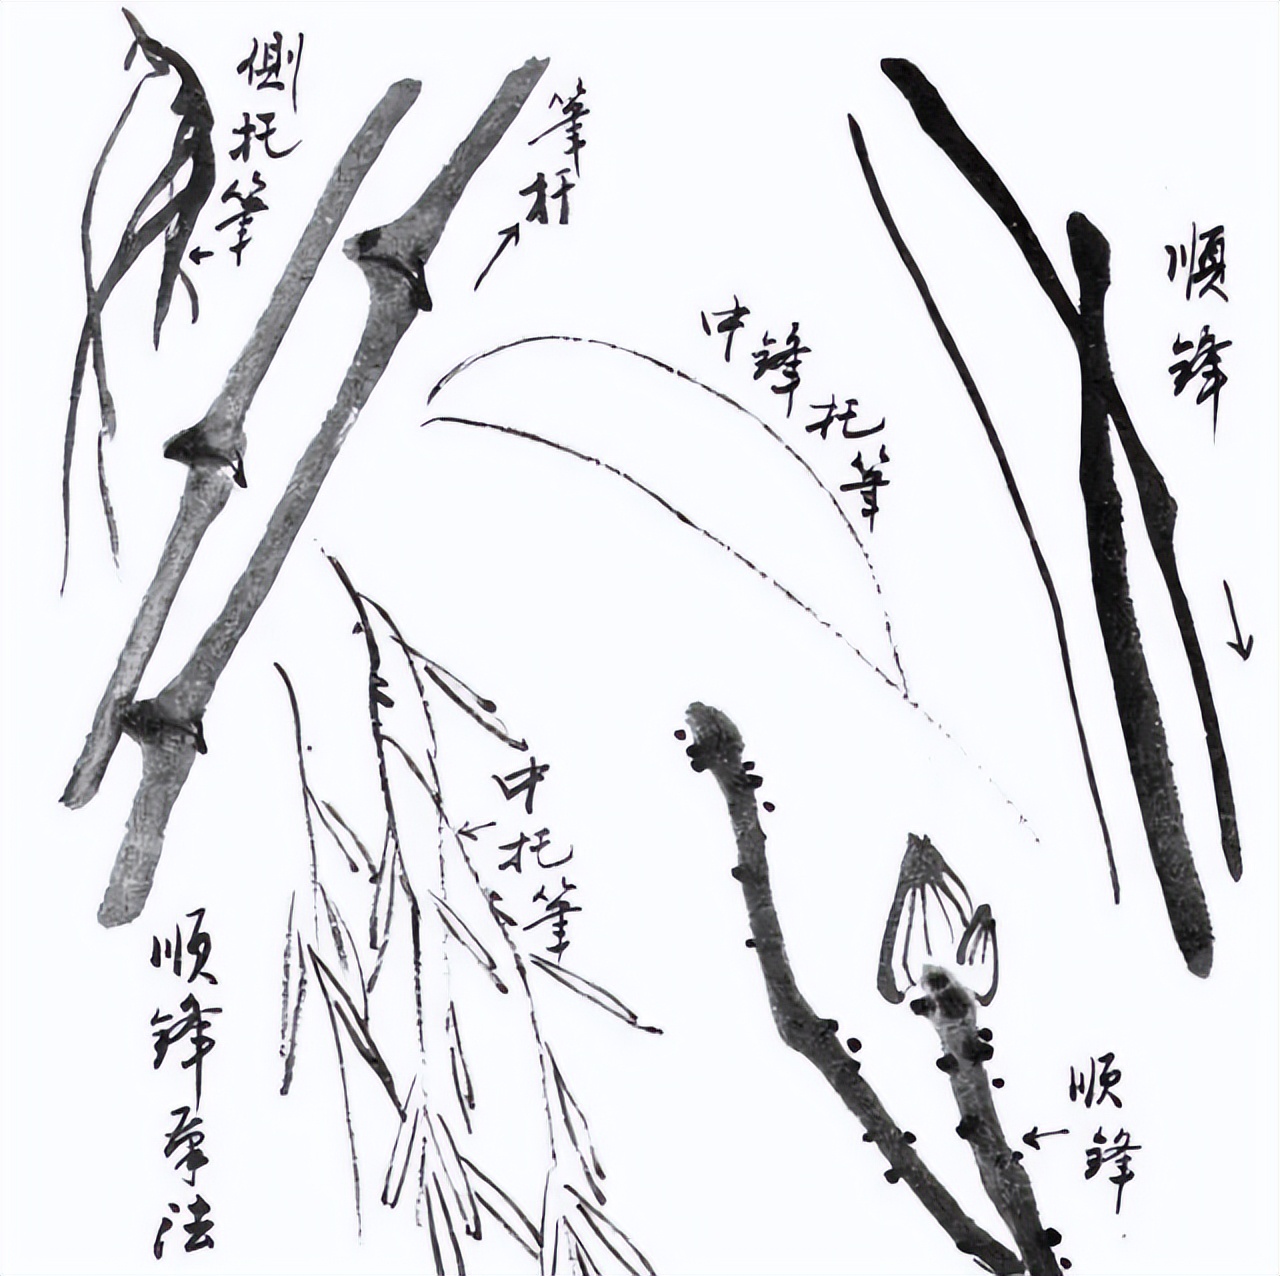 側托筆
筆杆
中鋒托筆
順鋒
中托筆
順鋒筆法
順鋒